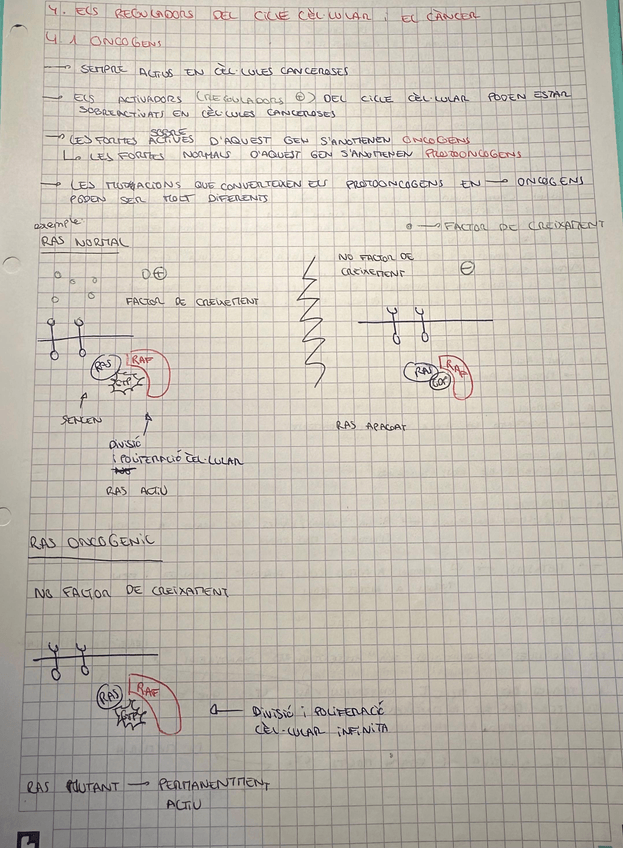 4. ELS REGULADORS DEL CICLE CÈL·LULAR i EL CÀNCER
4.1 ONCOGENS
→ SEMPRE ACTIUS EN CÈL·LULES CANCEROSES
→ ELS ACTIVADORS (REGULADORS ⊕) DEL CICLE CÈL·LULAR PODEN ESTAR
SOBREACTIVATS EN CÈL·LULES CANCEROSES
→ LES FORMES SOBRE ACTIVES D'AQUEST GEN S'ANOMENEN ONCOGENS
↳ LES FORMES NORMALS D'AQUEST GEN S'ANOMENEN PROTOONCOGENS
→ LES MUTACIONS QUE CONVERTEIXEN ELS PROTOONCOGENS EN → ONCOGENS
PODEN SER MOLT DIFERENTS
exemple:
o → FACTOR DE CREIXAMENT
RAS NORMAL
NO FACTOR DE
CREIXEMENT ⊖
o ⊕
FACTOR DE CREIXEMENT
RAS RAF
GTP
RAS RAF
GDP
SENCEN
DIVISIÓ
i POLIFERACIÓ CÈL·LULAR
RAS ACTIU
RAS APAGAT
RAS ONCOGENIC
NO FACTOR DE CREIXAMENT
RAS RAF
GTP
← DIVISIÓ i POLIFERACÓ
CÈL·LULAR INFINITA
RAS MUTANT → PERMANENTMENT
ACTIU